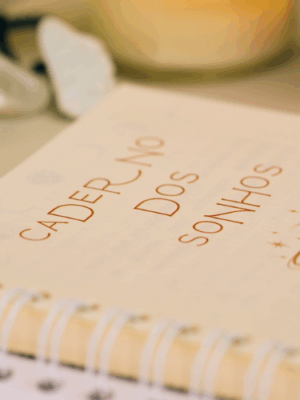 CADERNO
DOS
SONHOS